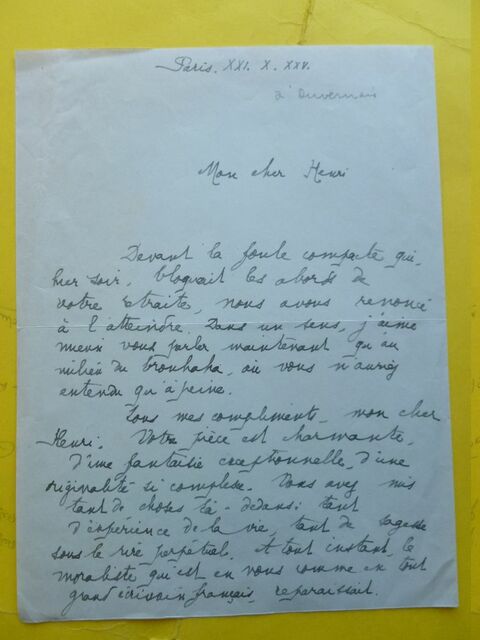 Paris. XXI. X. XXV.
à Duvernois
Mon cher Henri
Devant la foule compacte qui,
hier soir, bloquait les abords de
votre retraite, nous avons renoncé
à l'atteindre. Dans un sens, j'aime
mieux vous parler maintenant qu'au
milieu du brouhaha, où vous n'auriez
entendu qu'à peine.
Tous mes compliments, mon cher
Henri. Votre pièce est charmante,
d'une fantaisie exceptionnelle, d'une
originalité si complexe. Vous avez mis
tant de choses là-dedans: tant
d'expérience de la vie, tant de sagesse
sous le rire perpétuel. À tout instant, le
moraliste qui est en vous comme en tout
grand écrivain français, reparaissait.